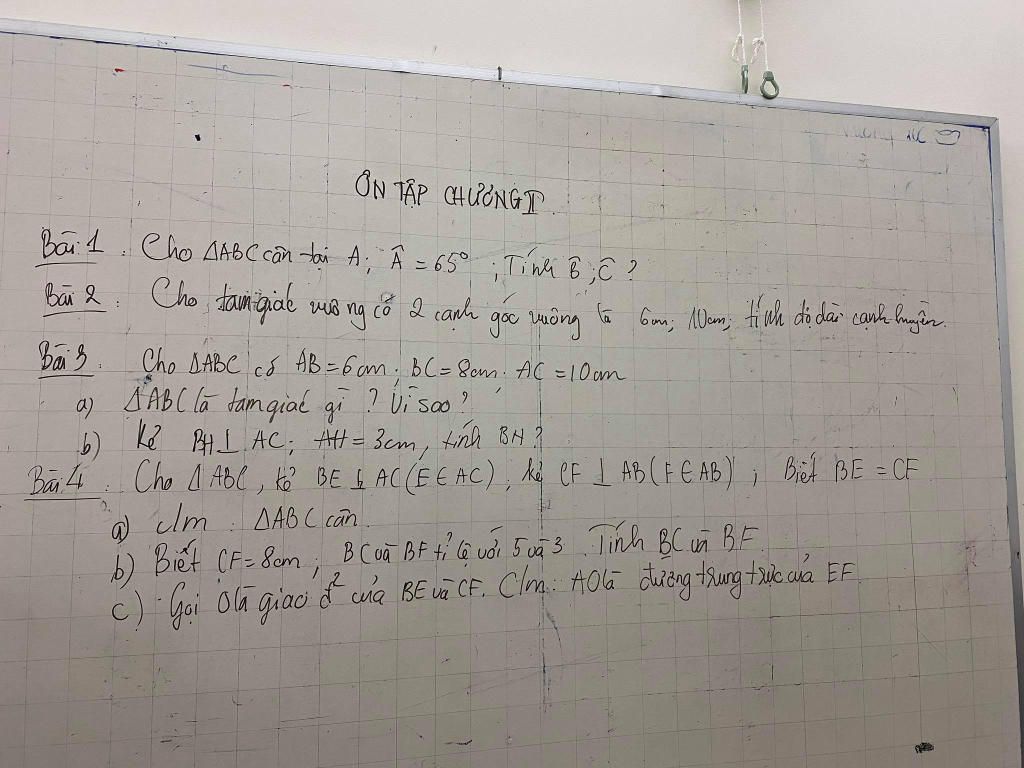 ÔN TẬP CHƯƠNG II
Bài 1. Cho ΔABC cân tại A; Â = 65°; Tính B̂; Ĉ?
Bài 2. Cho tam giác vuông có 2 cạnh góc vuông là 6cm; 10cm; tính độ dài cạnh huyền.
Bài 3. Cho ΔABC có AB = 6cm; BC = 8cm. AC = 10cm
a) ΔABC là tam giác gì? Vì sao?
b) Kẻ BH ⊥ AC; AH = 3cm, tính BH?
Bài 4. Cho ΔABC, kẻ BE ⊥ AC (E ∈ AC); kẻ CF ⊥ AB (F ∈ AB); Biết BE = CF
a) c/m: ΔABC cân.
b) Biết CF = 8cm; BC và BF tỉ lệ với 5 và 3. Tính BC và BF.
c) Gọi O là giao đ² của BE và CF. C/m: AO là đường trung trực của EF